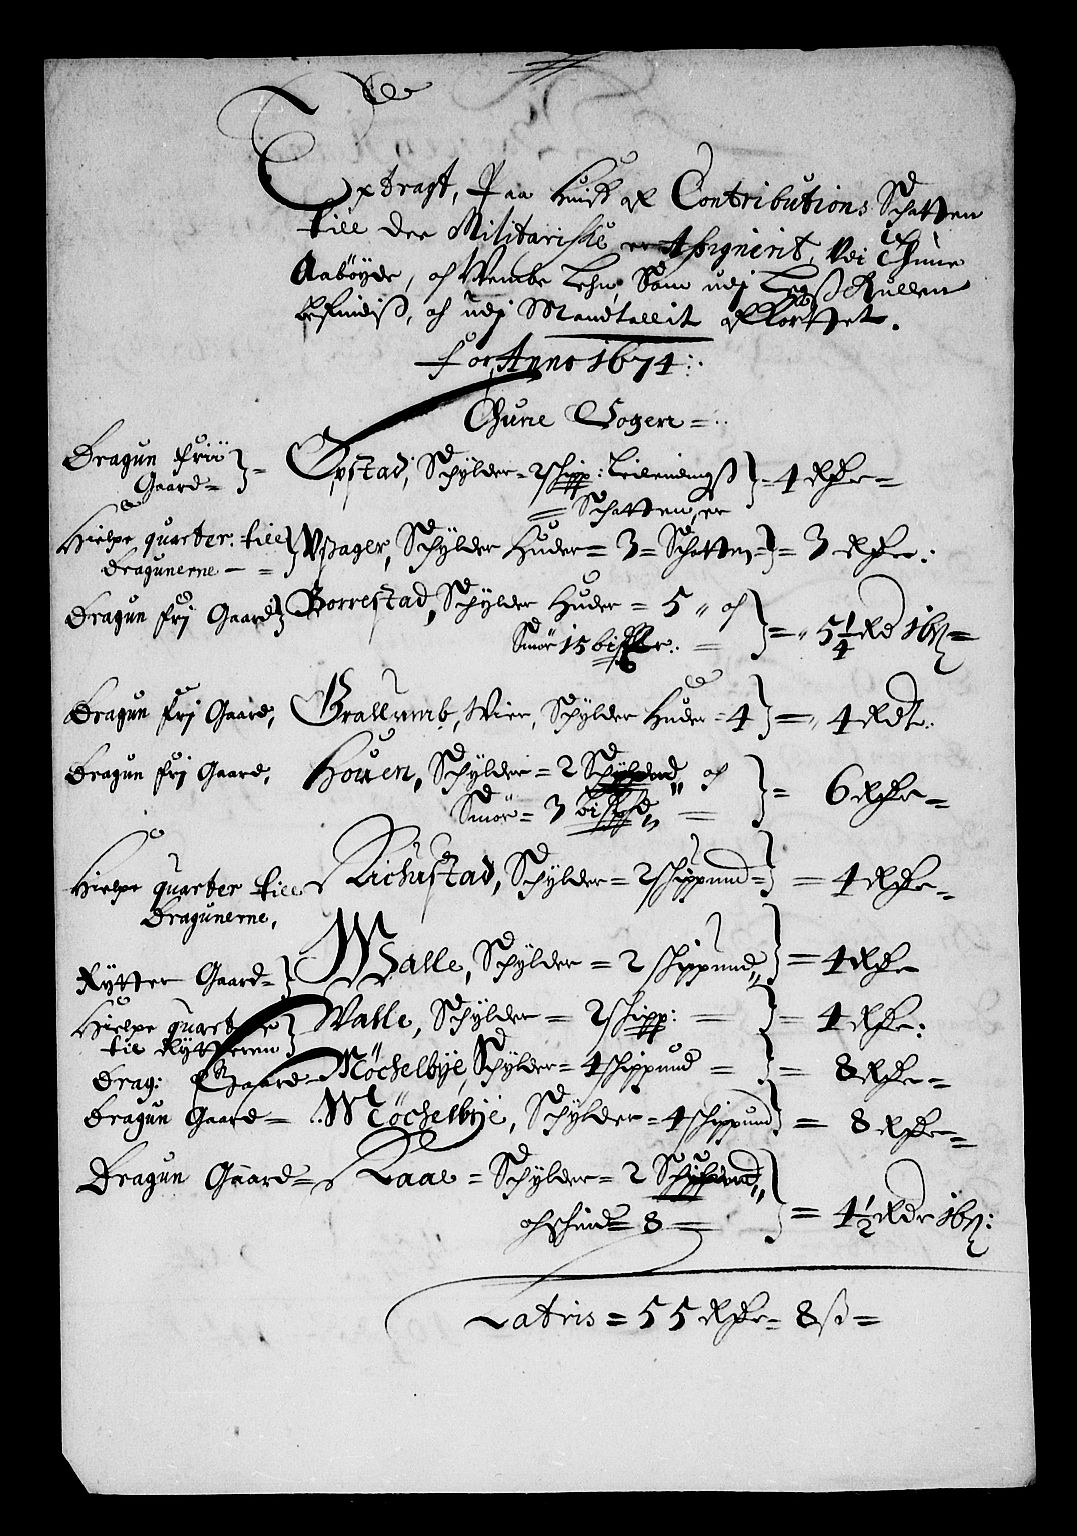 Extragt, Paa huis af Contributions Schatten
till dee Militariske er Assignerit, Vdi Thune
Aabÿde, oc Vembe Lehn, Som udj Legß Rullen
befindiß, oc udj Mandtallit afkorttet.
For Anno 1674:
Thune Sogen =
Dragun frii Gaard = Opstad, Schÿlder = 2 schipp: Leilendingß = 4 Rdr =
= Schatten er
Hielpe quarter. till dragunerne - = Vßager, Schÿlder Huder = 3 = Schatten = 3 Rdr:
Dragun frj Gaard Borrestad, Schÿlder Huder = 5 oc
Smör 15 = 5 1/4 Rd 16 ß =
Dragun frj Gaard, Grallumb, Vier, Schÿlder Huder = 4 = 4 Rdr:
Dragun frj Gaard, Houen, Schÿlder = 2 oc
Smör = 3 = 6 Rdr =
Hielpe quarter till Dragunerne, Kichestad, Schÿlder = 2 schippund = 4 Rdr =
Rÿtter Gaard = Walle, Schÿlder = 2 schippund = 4 Rdr
Hielpe quarter til Rÿtteren Walle, Schÿlder = 2 schipp: = 4 Rdr:
Drag: Gaard = Möchelbÿe, Schÿlder = 4 schippund = 8 Rdr =
Dragun Gaard = Möchelbÿe, Schÿlder = 4 schippund = 8 Rdr =
Dragun Gaard = Raae = Schÿlder = 2
och = 8 = = 4 1/2 Rdr 16 ß:
Latris = 55 Rdr = 8 ß =